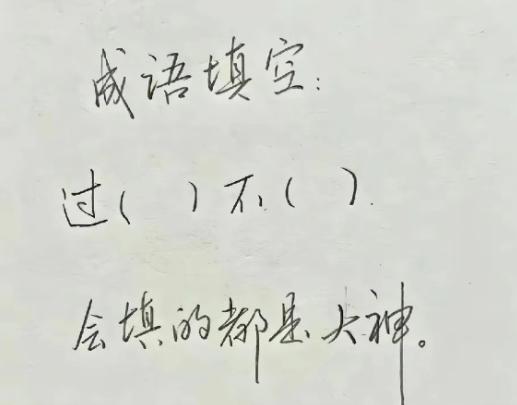 成语填空:
过( )不( ).
会填的都是大神。